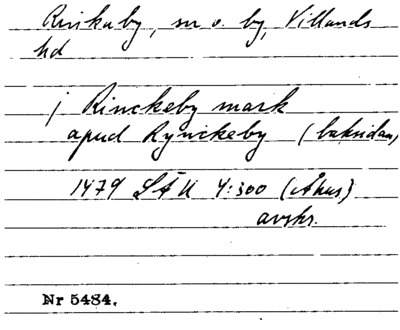 Rinkaby, sn o. by, Villands
hd
j Rinckeby mark
apud Rynckeby (baksidan)
1479 LÄU 4:300 (Åhus)
avskr.
Nr 5484.